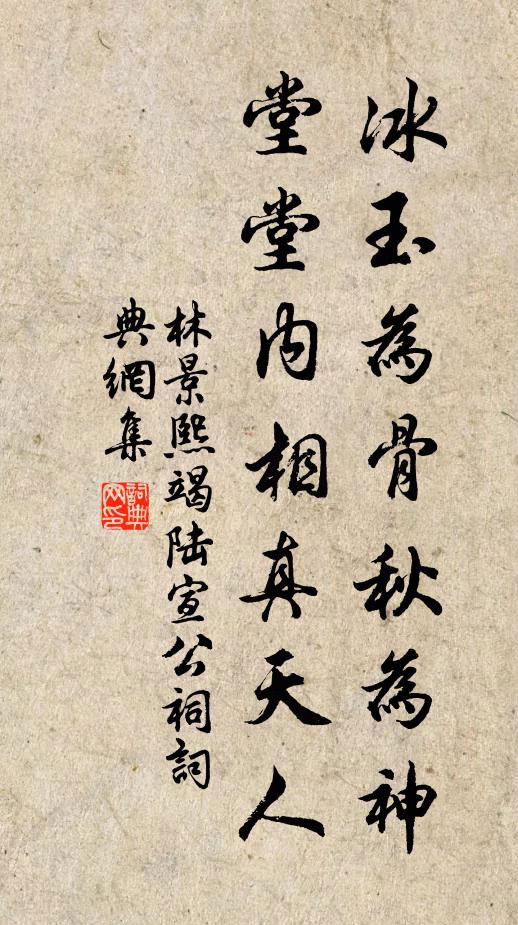 冰玉為骨秋為神
堂堂內相真天人
林景熙竭陆宣公祠詞
典網集
詞典
网印